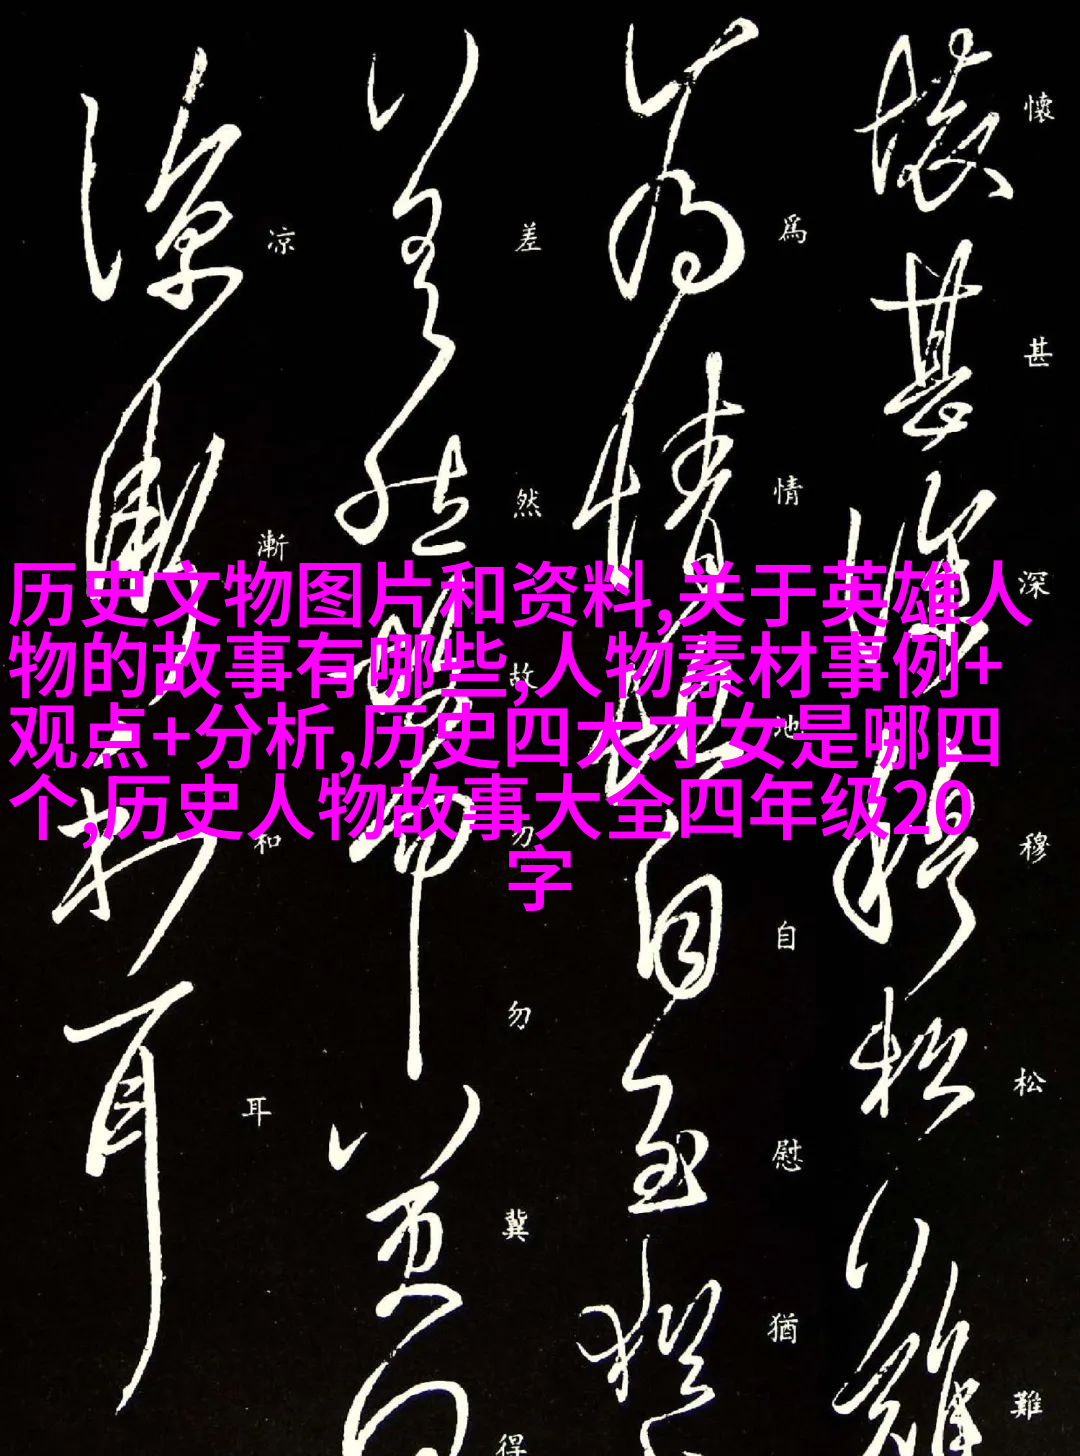 懷甚深穆松難
為情池自慰猶
差然故勿勿冀得
凉漸和耳
历史文物图片和资料,关于英雄人
物的故事有哪些,人物素材事例+
观点+分析,历史四大才女是哪四
个,历史人物故事大全四年级20
字